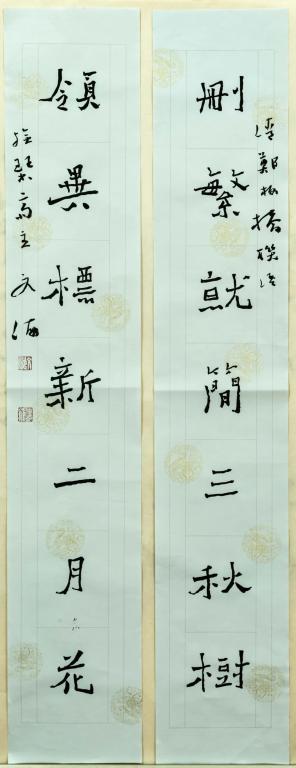 刪繁就簡三秋樹
清鄭板橋聯語
領異標新二月花
琴斋主文海